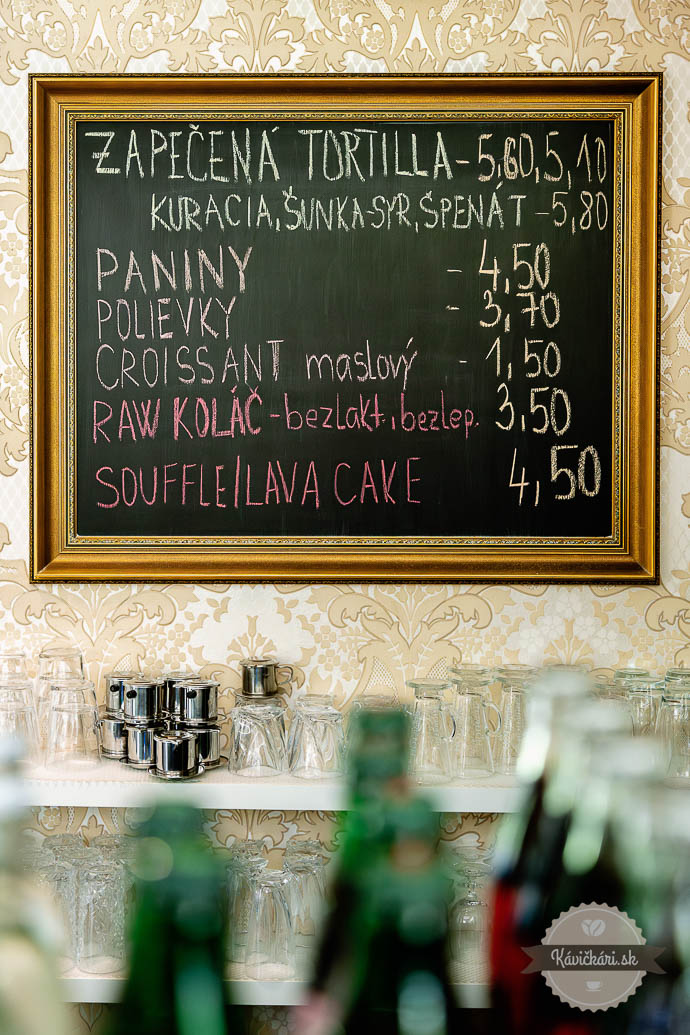 ZAPEČENÁ TORTILLA - 5,60, 5,10
KURACIA, ŠUNKA-SYR, ŠPENÁT - 5,80
PANINY - 4,50
POLIEVKY - 3,70
CROISSANT maslový - 1,50
RAW KOLÁČ - bezlakt., bezlep. 3,50
SOUFFLE/LAVA CAKE 4,50
Kávičkári.sk